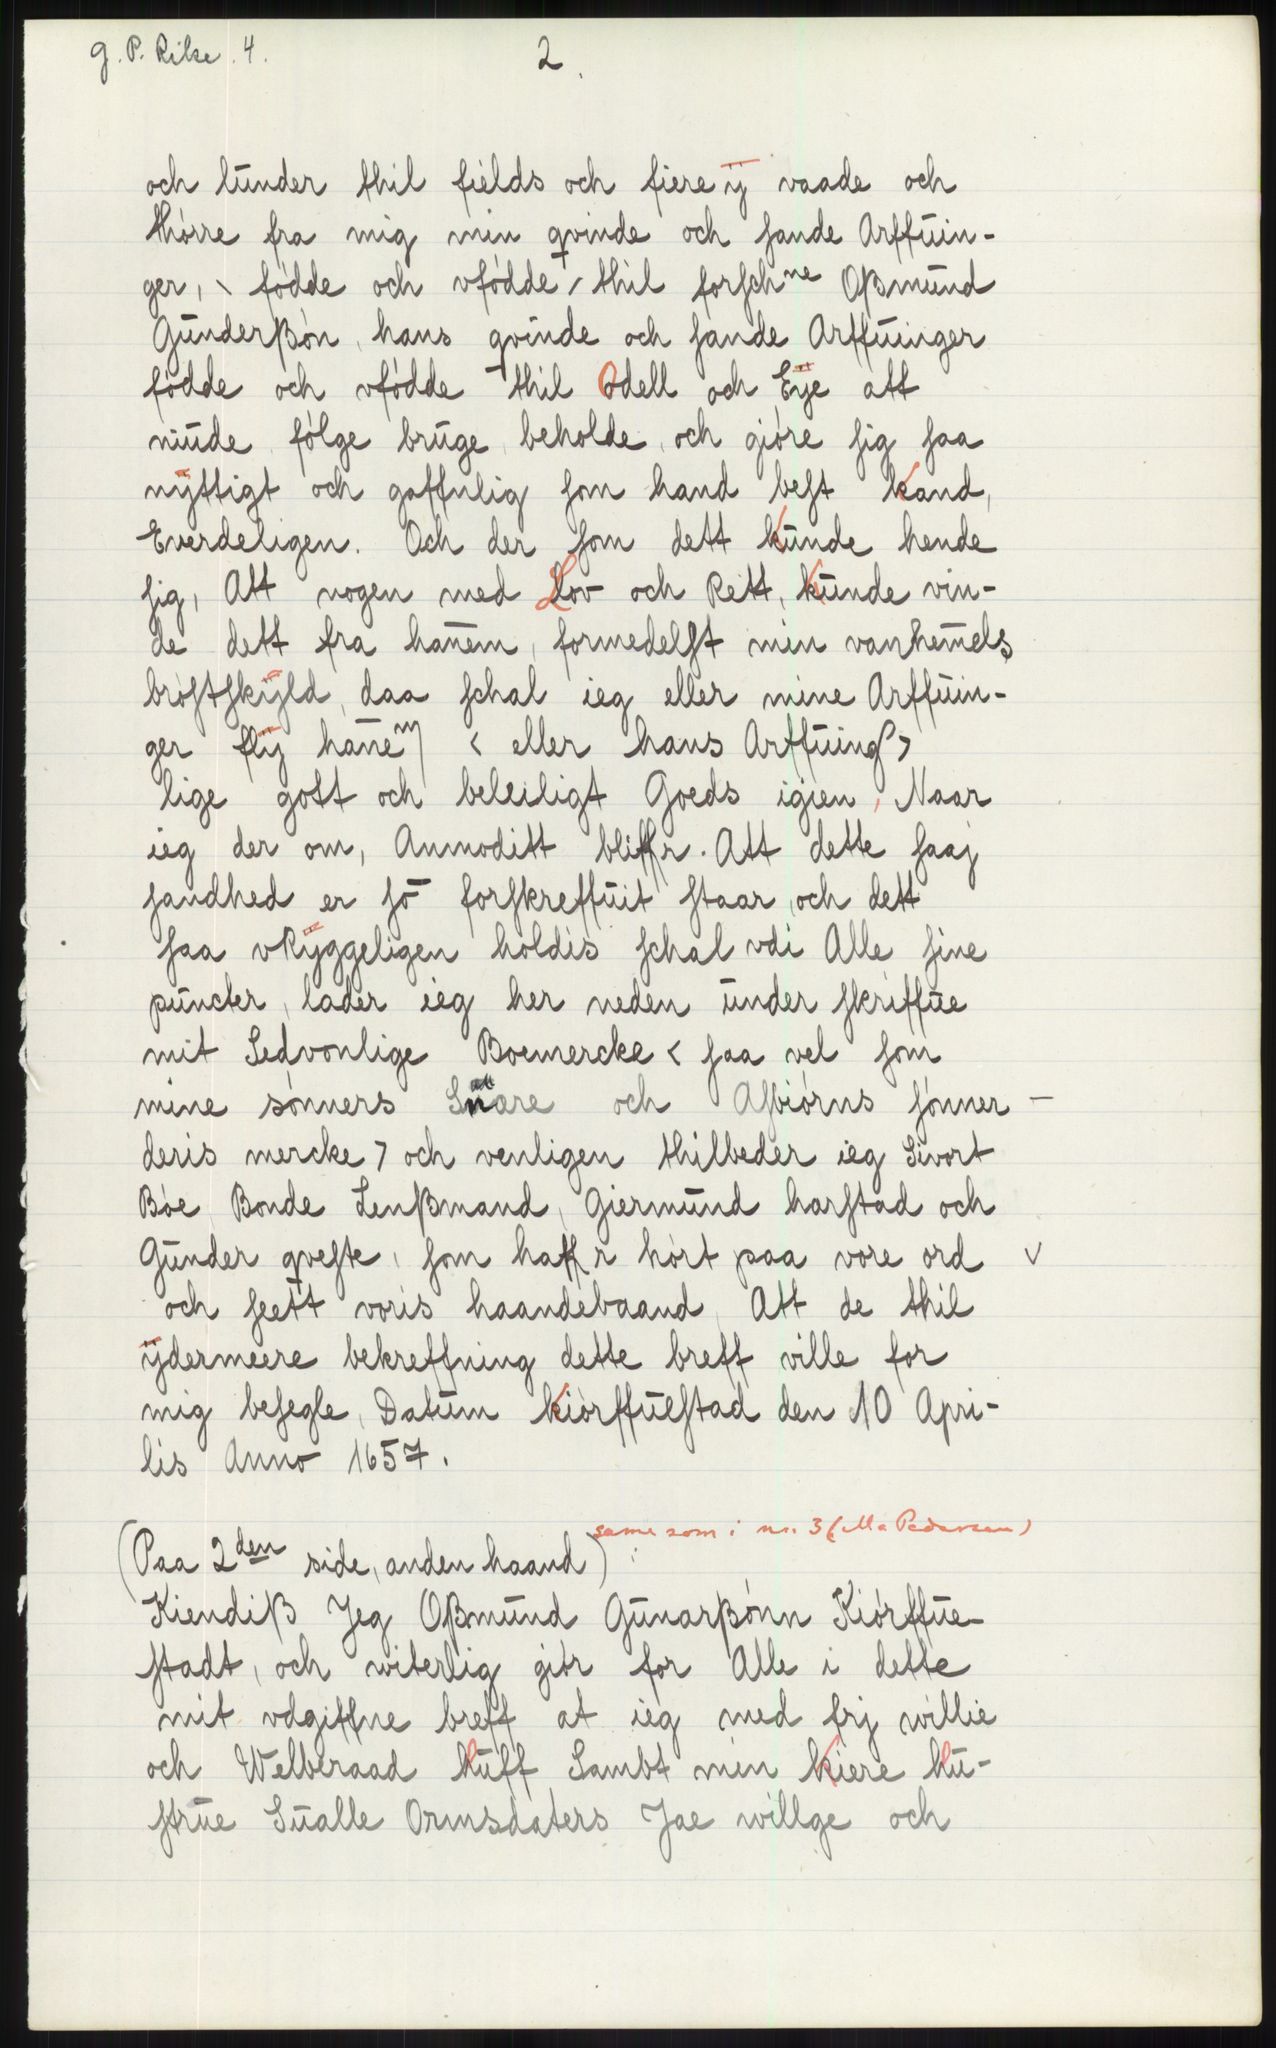 g. P. Rike. 4.
2.
och lunder thil fields och fiere ÿ vaade och
thórre fra mig min qvinde och sande Arffuin-
ger, fódde och vfódde / thil forsch ne Oßmund
Gunderßón, hans qvinde och sande Arffuinger
fódde och vfódde thil Odell och Eÿe att
niude fólge bruge, beholde, och gióre sig saa
nÿttigt och gaffnlig som hand best kand,
Everdeligen. Och der som dett kunde hende
sig, Att nogen med Lov och Rett, kunde vin-
de dett fra hanem, formedelst min vanhemels
bróstskÿld, daa schal ieg eller mine Arffuin-
ger flÿ hanem < eller hans Arffuing >
lige gott och beleiligt Goeds igien, Naar
ieg der om, Anmoditt bliffr. Att dette saaj
sandhed er so forskreffuit staar, och dett
saa vRÿggeligen holdis schal vdi Alle sine
puncter, lader ieg her neden under skriffue
mit Sedvonlige Boemercke < saa vel som
mine sónners Snare och Asbiórns sónner –
deris mercke > och venligen thilbeder ieg Sivort
Bóe Bonde Lenßmand, Giermund harstad och
Gunder qveste, som haffr hórt paa vore ord √
och seett voris haandebaand, Att de thil
ÿdermeere bekreffning dette breff ville for
mig besegle, Datum kiórffuestad den 10 Apri-
lis Anno 1657.
same som i nr. 3 (Ma Pedersen)
(Paa 2den side, anden haand) :
Kiendiß Jeg Oßmund Gunarßónn Kiórffue-
stadt, och witerlig giór for Alle i dette
mit vdgiffne breff at ieg med frj willie
och Welberaad huff Sambt min kiere hu-
strue Sualle Ormsdaters Jae willge och